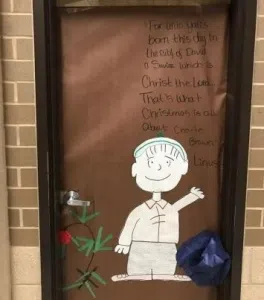 For unto you is
born this day in
the city of David
a Savior which is
Christ the Lord.
That's what
Christmas is all
about Charlie
Brown
Linus